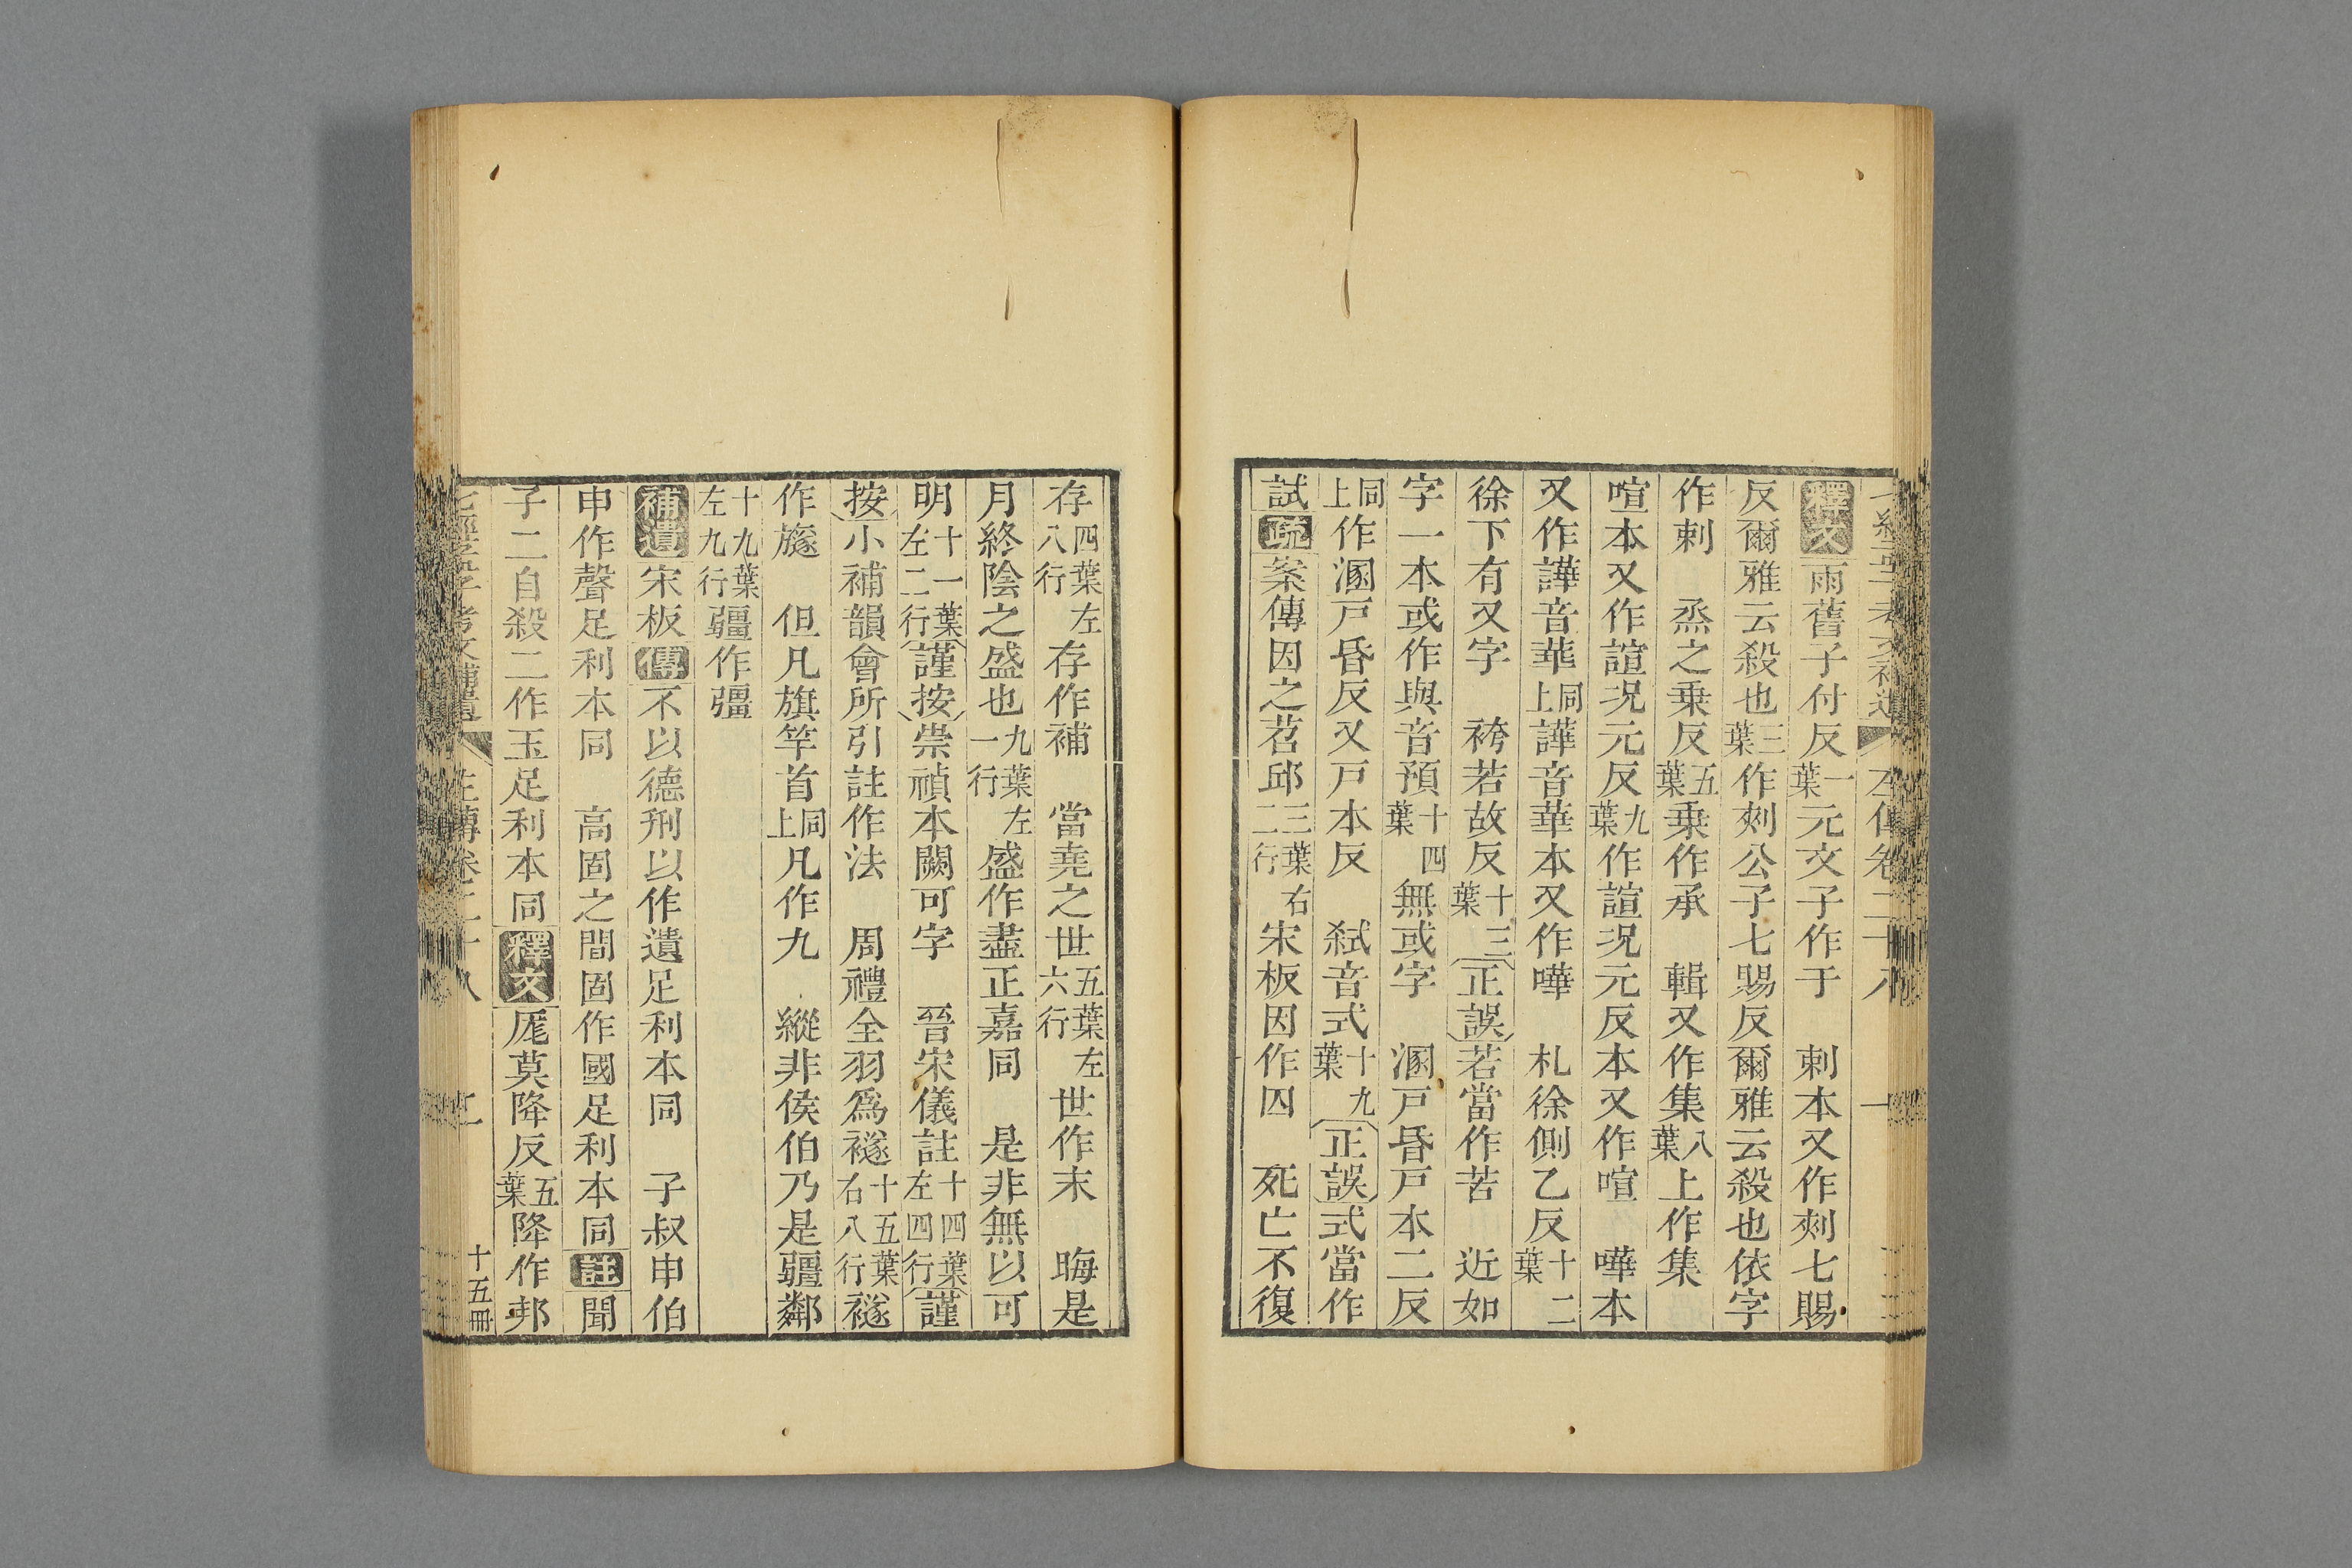 釋文雨舊子付反一葉元文子作于　刺本又作刾七賜
反爾雅云殺也三葉作刾公子七賜反爾雅云殺也依字
作刺　烝之乗反五葉乗作承　輯又作集八葉上作集
喧本又作諠況元反九葉作諠況元反本又作喧　嘩本
又作譁音華同上譁音華本又作嘩　札徐側乙反十二葉
徐下有又字　袴若故反十三葉正誤若當作苦　近如
字一本或作與音預十四葉無或字　溷戸昏戸本二反
同上作溷戸昏反又戸本反　弑音式十九葉正誤式當作
試疏案傳因之茗邱三葉右二行宋板因作囚　死亡不復
存四葉左八行存作補　當堯之世五葉左六行世作末　晦是
月終陰之盛也九葉左一行盛作盡正嘉同　是非無以可
明十一葉左二行謹按崇禎本闕可字　晉宋儀註十四葉左四行謹
按小補韻會所引註作法　周禮全羽爲襚十五葉右八行襚
作旞　但凡旗竿首同上凡作九　縱非侯伯乃是疆鄰
十九葉左九行疆作彊
補遺宋板傳不以德刑以作遺足利本同　子叔申伯
申作聲足利本同　高固之間固作國足利本同註聞
子二自殺二作玉足利本同釋文厖莫降反五葉降作邦
十五冊